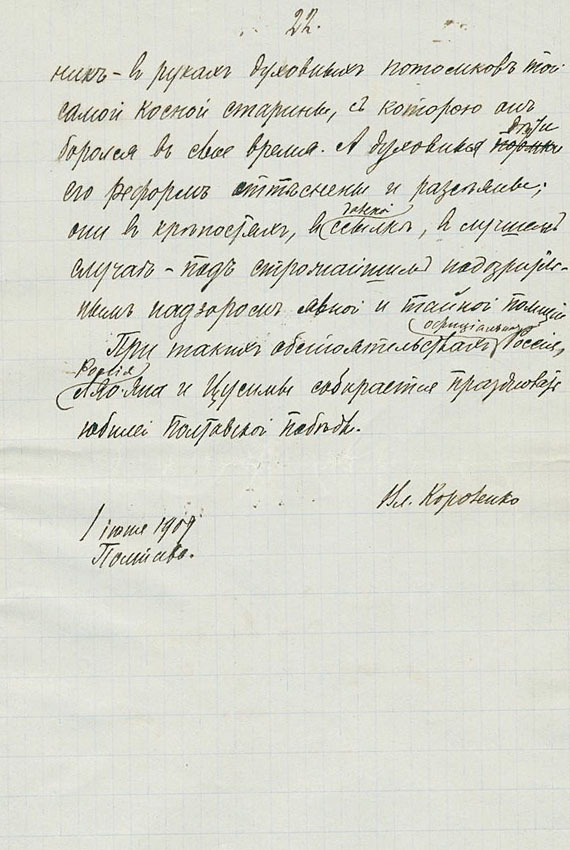 22.
никъ - въ рукахъ духовныхъ потомковъ той
самой косной старины, съ которою онъ
боролся въ свое время. А духовныя дѣти
его реформъ оттѣснены и разсѣяны;
они въ крѣпостяхъ, въ ссылкѣ, въ лучшемъ
случаѣ - подъ строжайшимъ подозритель-
нымъ надзоромъ явной и тайной полиціи
При такихъ обстоятельствахъ официальная Россія,
Россія Ляояна и Цусимы собирается праздновать
юбилей Полтавской побѣды.
Вл. Короленко
1 іюня 1909
Полтава.